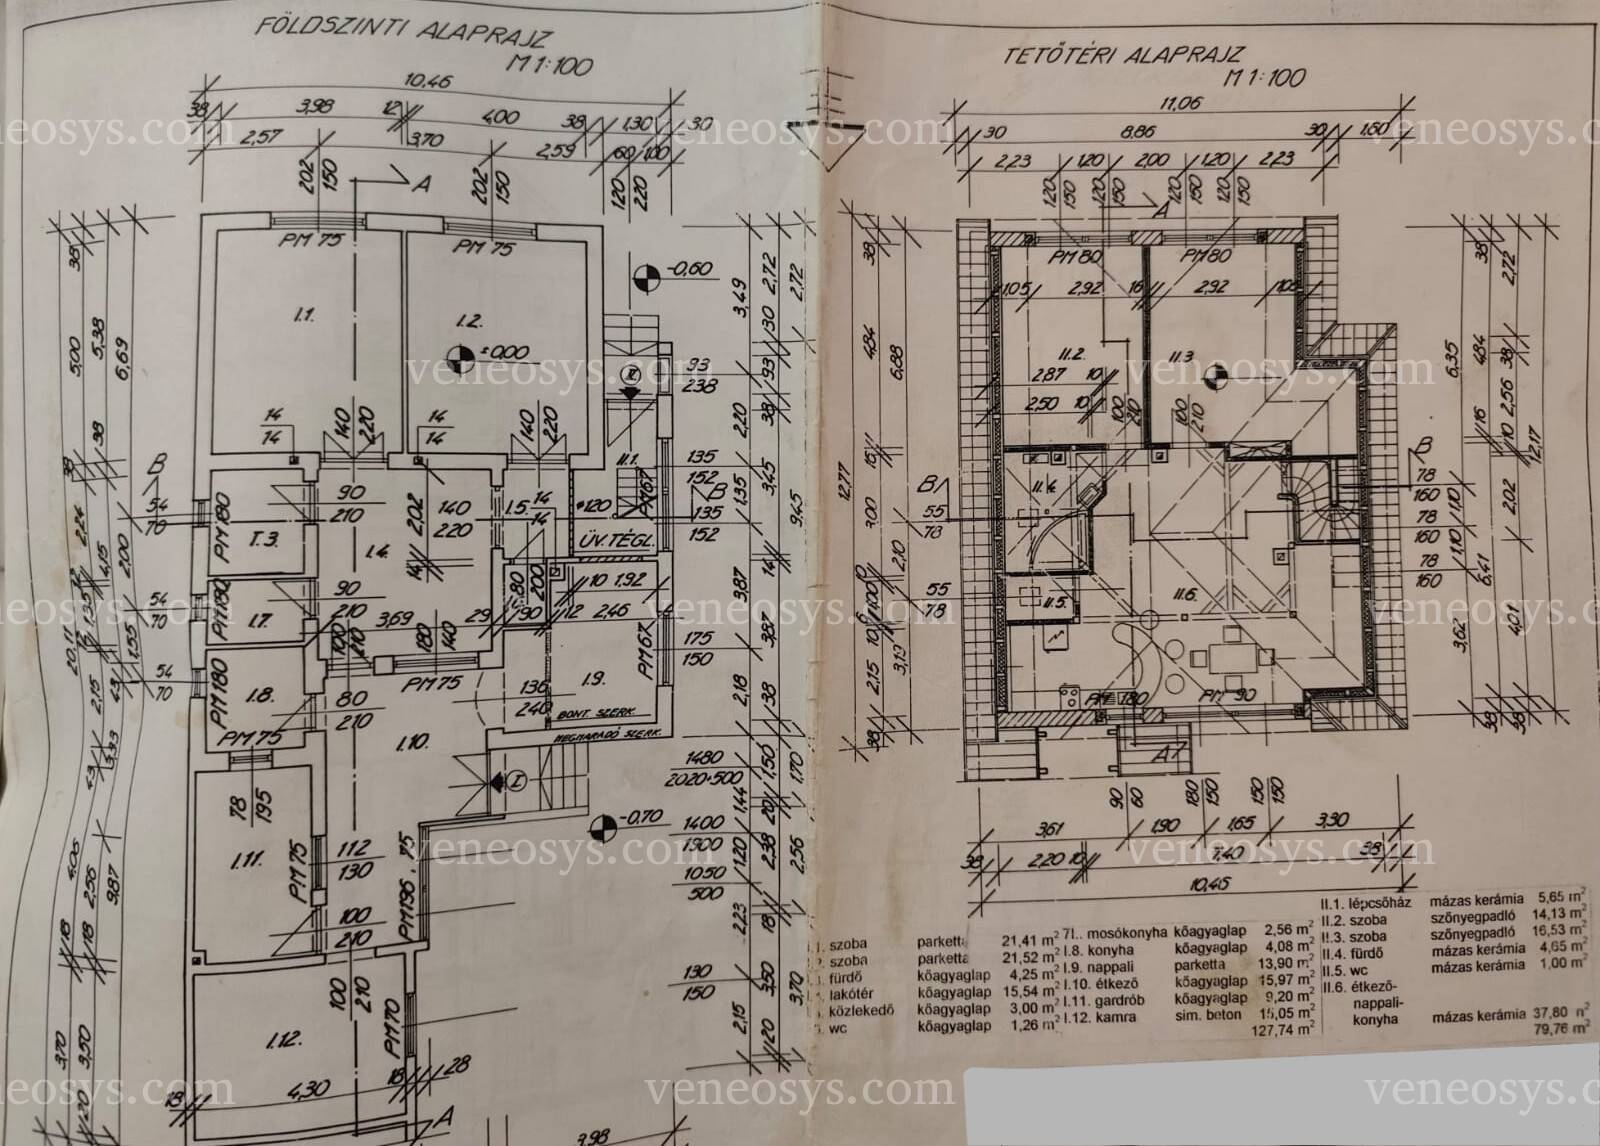 FÖLDSZINTI ALAPRAJZ
M 1:100
TETŐTÉRI ALAPRAJZ
M 1:100
10,46
38 3,98 12 4,00 38 1,30 30
2,57 3,70 2,59 60 100
202 150 A 202 150 120 220
PM 75 PM 75
-0,60
I.1. I.2.
±0,00
14 14 140 220 14 14 140 220
93 238
II.1.
135 152
PM 67
135 152
B B
54 70
PM 180
I.3.
90 210
I.4.
2,02
140 220
I.5.
14 14
120
ÜV. TÉGL.
54 70
PM 180
I.7.
90 210
3,69 29
80 200
90
10 1,92
12 2,46
100 210
180 140
175 150
PM 67
54 70
PM 180
I.8.
80 210
PM 75
136 240
I.9.
BONT. SZERK.
MEGMARADÓ SZERK.
PM 75
I.10.
I.
-0,70
78 195
I.11.
PM 75
112 130
PM 196, 75
100 210
1480
2020+500
1400
1900
1050
500
130
150
100 210
I.12.
PM 70
4,30 18 28
18
A
3,98
38 5,00 38 5,38 6,69
20,11
2,24 4,15 2,00
1,35 1,55 2,15 43
4,06 2,56 9,87
18 18
3,70 3,50 1,20
3,49 2,72 2,72
30 93 38
2,20 1,35 3,45 9,45
14 3,87 3,87
2,18 38
1,50 1,70
1,44 20
1,20 2,38 2,56
2,23 18
3,50 3,70
2,15 1,20
11,06
30 8,86 30 1,60
2,23 1,20 2,00 1,20 2,23
120 150 120 150 120 150 120 150
A
PM 80 PM 80
1,05 2,92 16 2,92 1,05
II.2. II.3
2,87 10
2,50 10
100 210 100 210
B B
II.4.
55 78
78 160
78 160
78 160
55 78
II.5.
II.6.
PM 180 PM 90
A
90 60 180 150 150 150
3,61 1,90 1,65 3,30
38 2,20 10 7,40 38
10,45
12,77
38 4,84 6,88
3,00 2,10
10 1,00
2,15 38
6,35 4,84 38 2,72
1,16 10 2,56 38
12,17
2,02 1,10 1,10
6,41 4,01 3,62
38 38 38
szoba parketta 21,41 m²
szoba parketta 21,52 m²
fürdő kőagyaglap 4,25 m²
lakótér kőagyaglap 15,54 m²
közlekedő kőagyaglap 3,00 m²
wc kőagyaglap 1,26 m²
7I.. mosókonyha kőagyaglap 2,56 m²
I.8. konyha kőagyaglap 4,08 m²
I.9. nappali parketta 13,90 m²
I.10. étkező kőagyaglap 15,97 m²
I.11. gardrób kőagyaglap 9,20 m²
I.12. kamra sim. beton 15,05 m²
127,74 m²
II.1. lépcsőház mázas kerámia 5,65 m²
II.2. szoba szőnyegpadló 14,13 m²
II.3. szoba szőnyegpadló 16,53 m²
II.4. fürdő mázas kerámia 4,65 m²
II.5. wc mázas kerámia 1,00 m²
II.6. étkező-
nappali-
konyha mázas kerámia 37,80 m²
79,76 m²
veneosys.com
veneosys.com
veneosys.com
veneosys.com
veneosys.com
veneosys.com
veneosys.com
veneosys.com
veneosys.com
veneosys.com
veneosys.com
veneosys.com
veneosys.com